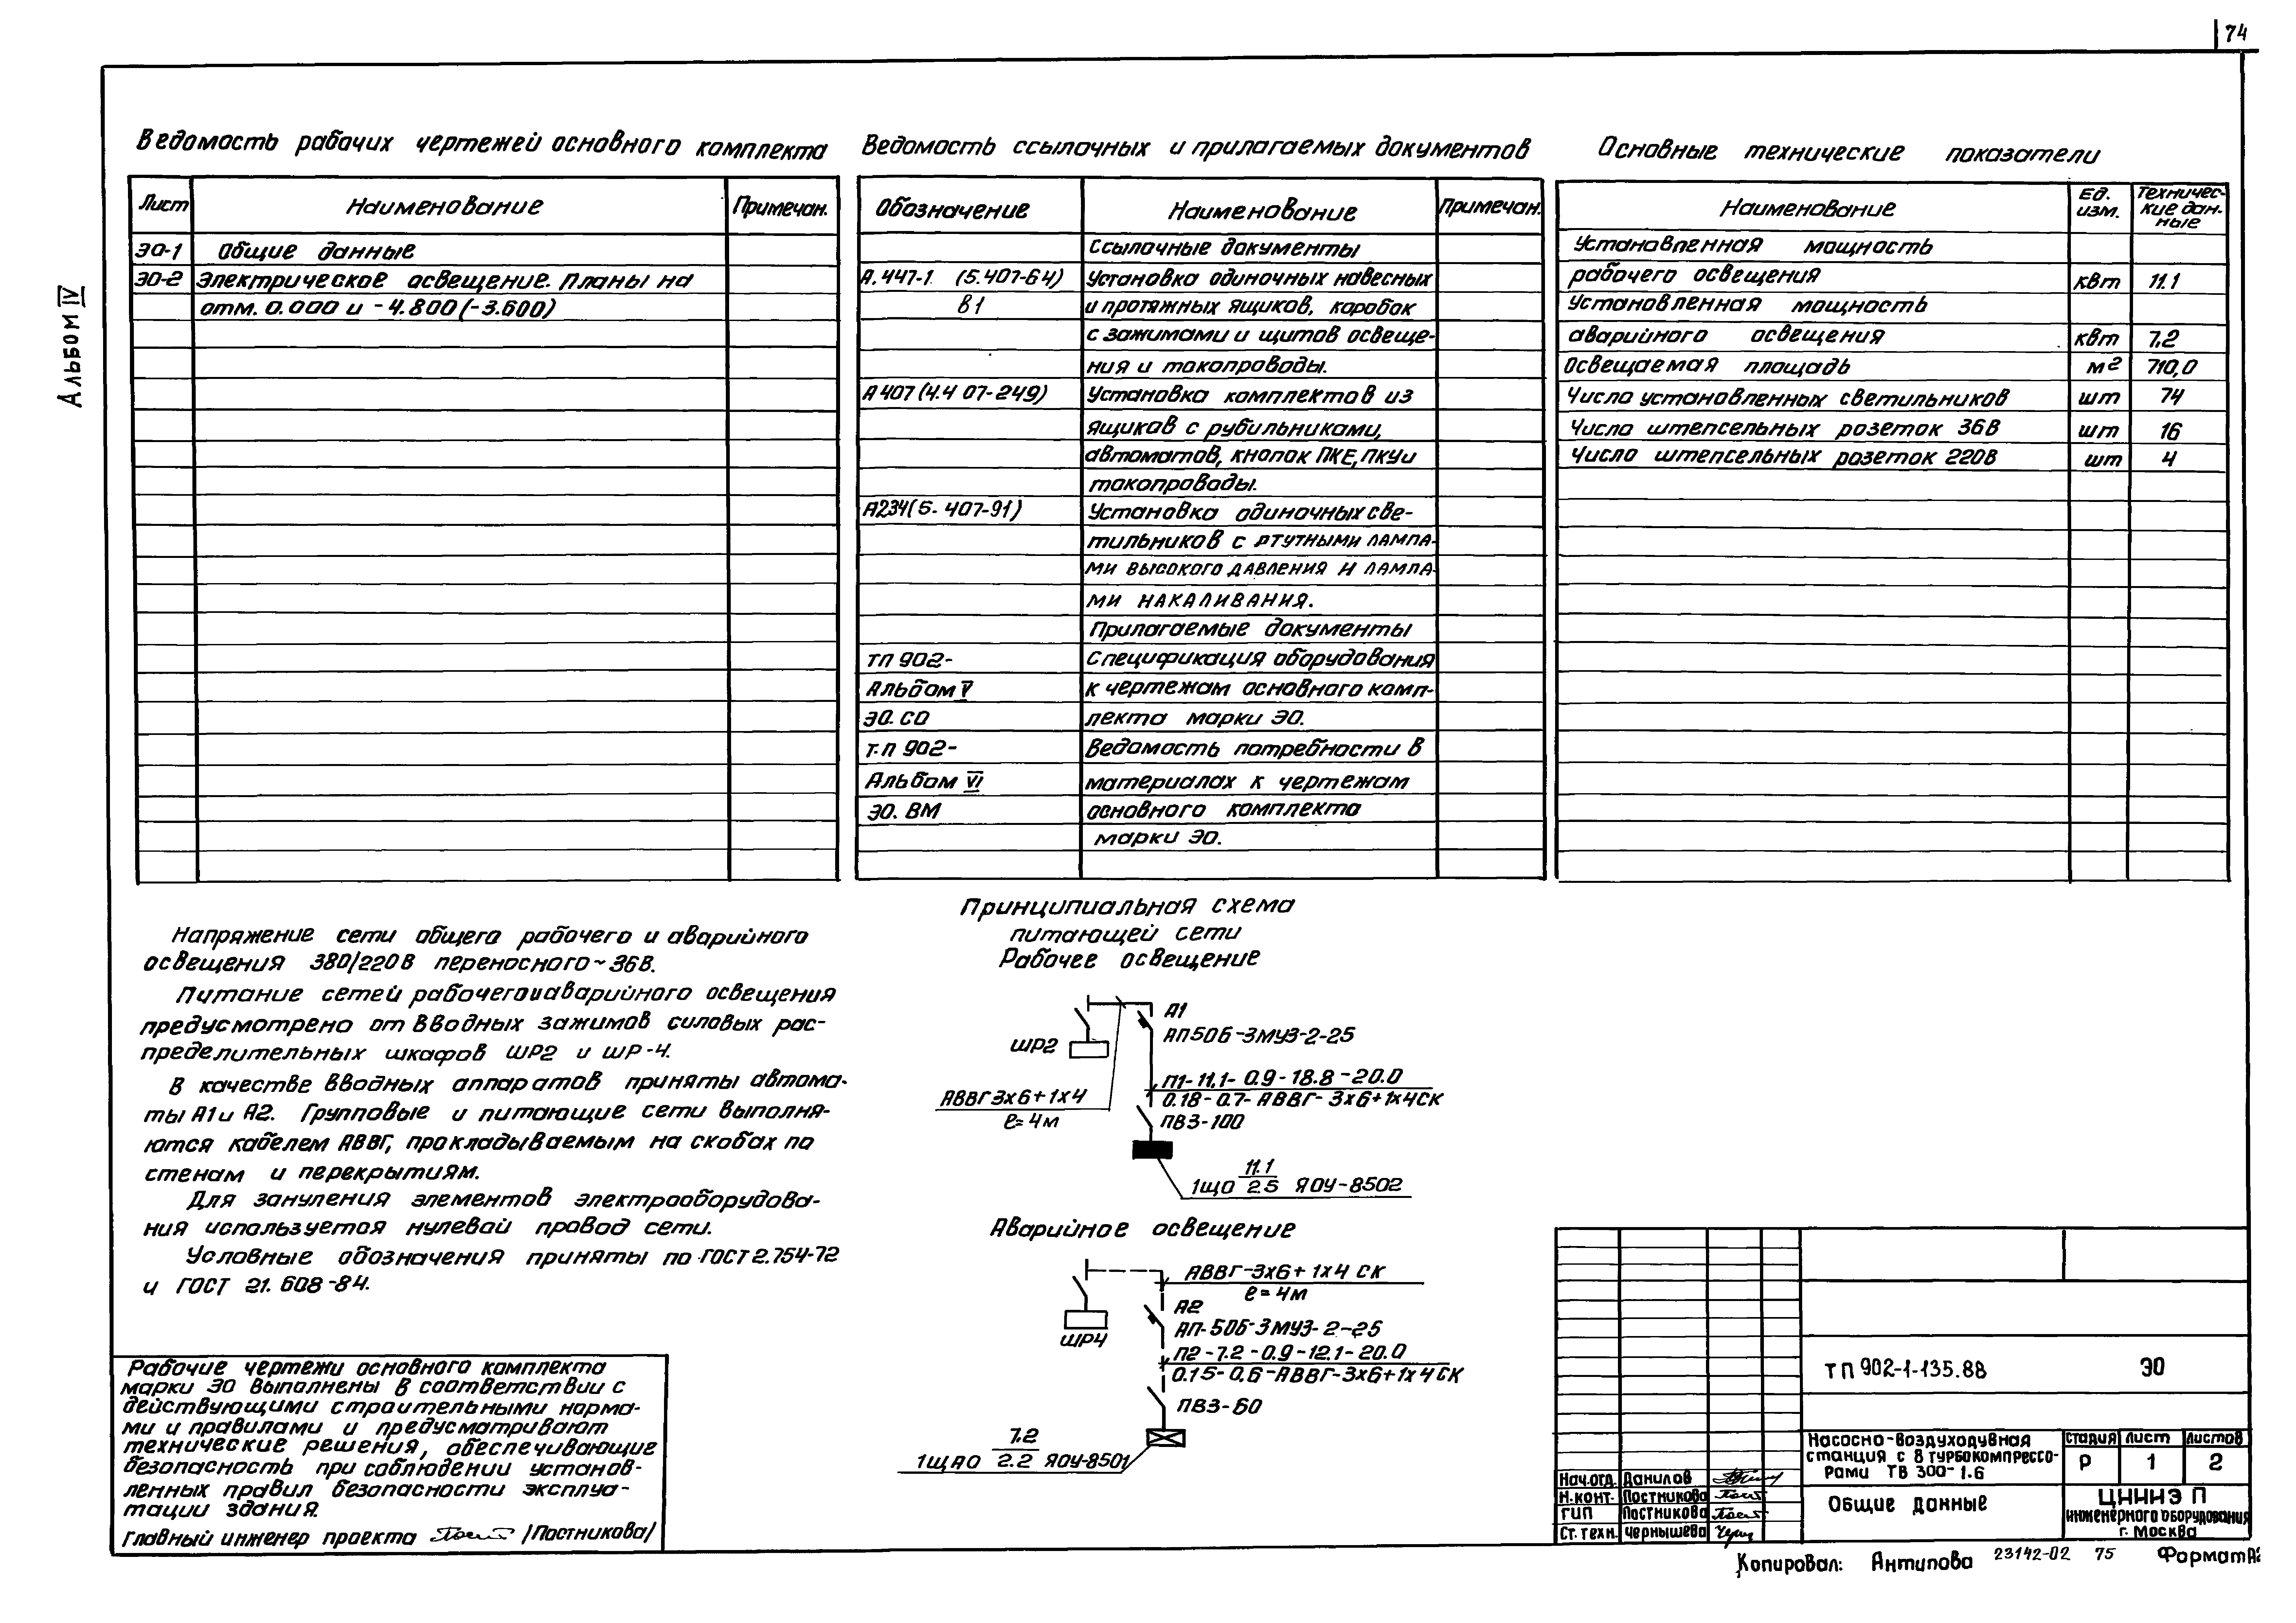 74
Альбом IV
Ведомость рабочих чертежей основного комплекта
Лист Наименование Примечан.
ЭО-1 Общие данные
ЭО-2 Электрическое освещение. Планы на
отм. 0.000 и -4.800(-3.600)
Ведомость ссылочных и прилагаемых документов
Обозначение Наименование Примечан.
Ссылочные документы
А.447-1 (5.407-64) Установка одиночных навесных
В1 и протяжных ящиков, коробок
с зажимами и щитов освеще-
ния и токопроводы.
А407(4.407-249) Установка комплектов из
ящиков с рубильниками,
автоматов, кнопок ПКЕ, ПКУ и
токопроводы.
А234(5.407-91) Установка одиночных све-
тильников с ртутными лампа-
ми высокого давления и лампа-
ми накаливания.
Прилагаемые документы
тп 902- Спецификация оборудования
Альбом V к чертежам основного комп-
ЭО.СО лекта марки ЭО.
т.п 902- Ведомость потребности в
Альбом VI материалах к чертежам
ЭО.ВМ основного комплекта
марки ЭО.
Основные технические показатели
Наименование Ед. изм. Техничес-
кие дан-
ные
Установленная мощность
рабочего освещения квт 11.1
Установленная мощность
аварийного освещения квт 7.2
Освещаемая площадь м2 710,0
Число установленных светильников шт 74
Число штепсельных розеток 36В шт 16
Число штепсельных розеток 220В шт 4
Напряжение сети общего рабочего и аварийного
освещения 380/220В переносного ~ 36В.
Питание сетей рабочего и аварийного освещения
предусмотрено от вводных зажимов силовых рас-
пределительных шкафов ШР2 и ШР-4.
В качестве вводных аппаратов приняты автома-
ты А1 и А2. Групповые и питающие сети выполня-
ются кабелем АВВГ, прокладываемым на скобах по
стенам и перекрытиям.
Для зануления элементов электрооборудова-
ния используется нулевой провод сети.
Условные обозначения приняты по ГОСТ 2.754-72
и ГОСТ 21.608-84.
Рабочие чертежи основного комплекта
марки ЭО выполнены в соответствии с
действующими строительными норма-
ми и правилами и предусматривают
технические решения, обеспечивающие
безопасность при соблюдении установ-
ленных правил безопасности эксплуа-
тации здания.
Главный инженер проекта /Постникова/
Принципиальная схема
питающей сети
Рабочее освещение
А1
АП50Б-3МУ3-2-25
ШР2
П1-11,1-0.9-18.8-20.0
0.18-0.7-АВВГ-3х6+1х4СК
АВВГ 3х6+1х4
ℓ=4м
ПВ3-100
1ЩО 11.1/2.5 ЯОУ-8502
Аварийное освещение
АВВГ-3х6+1х4 СК
ℓ=4м
А2
АП-50Б-3МУ3-2-25
ШР4
П2-7.2-0.9-12.1-20.0
0.15-0.6-АВВГ-3х6+1х4СК
ПВ3-60
1ЩАО 7.2/2.2 ЯОУ-8501
ТП 902-1-135.88 ЭО
Насосно-воздуходувная
станция с 8 турбокомпрессо-
рами ТВ 300-1.6
Стадия Лист Листов
Р 1 2
Общие данные
ЦНИИЭП
инженерного оборудования
г. Москва
Нач.отд. Данилов
Н.конт. Постникова
ГИП Постникова
Ст.техн. Чернышева
Копировал: Антипова 23142-02 75 Формат А2